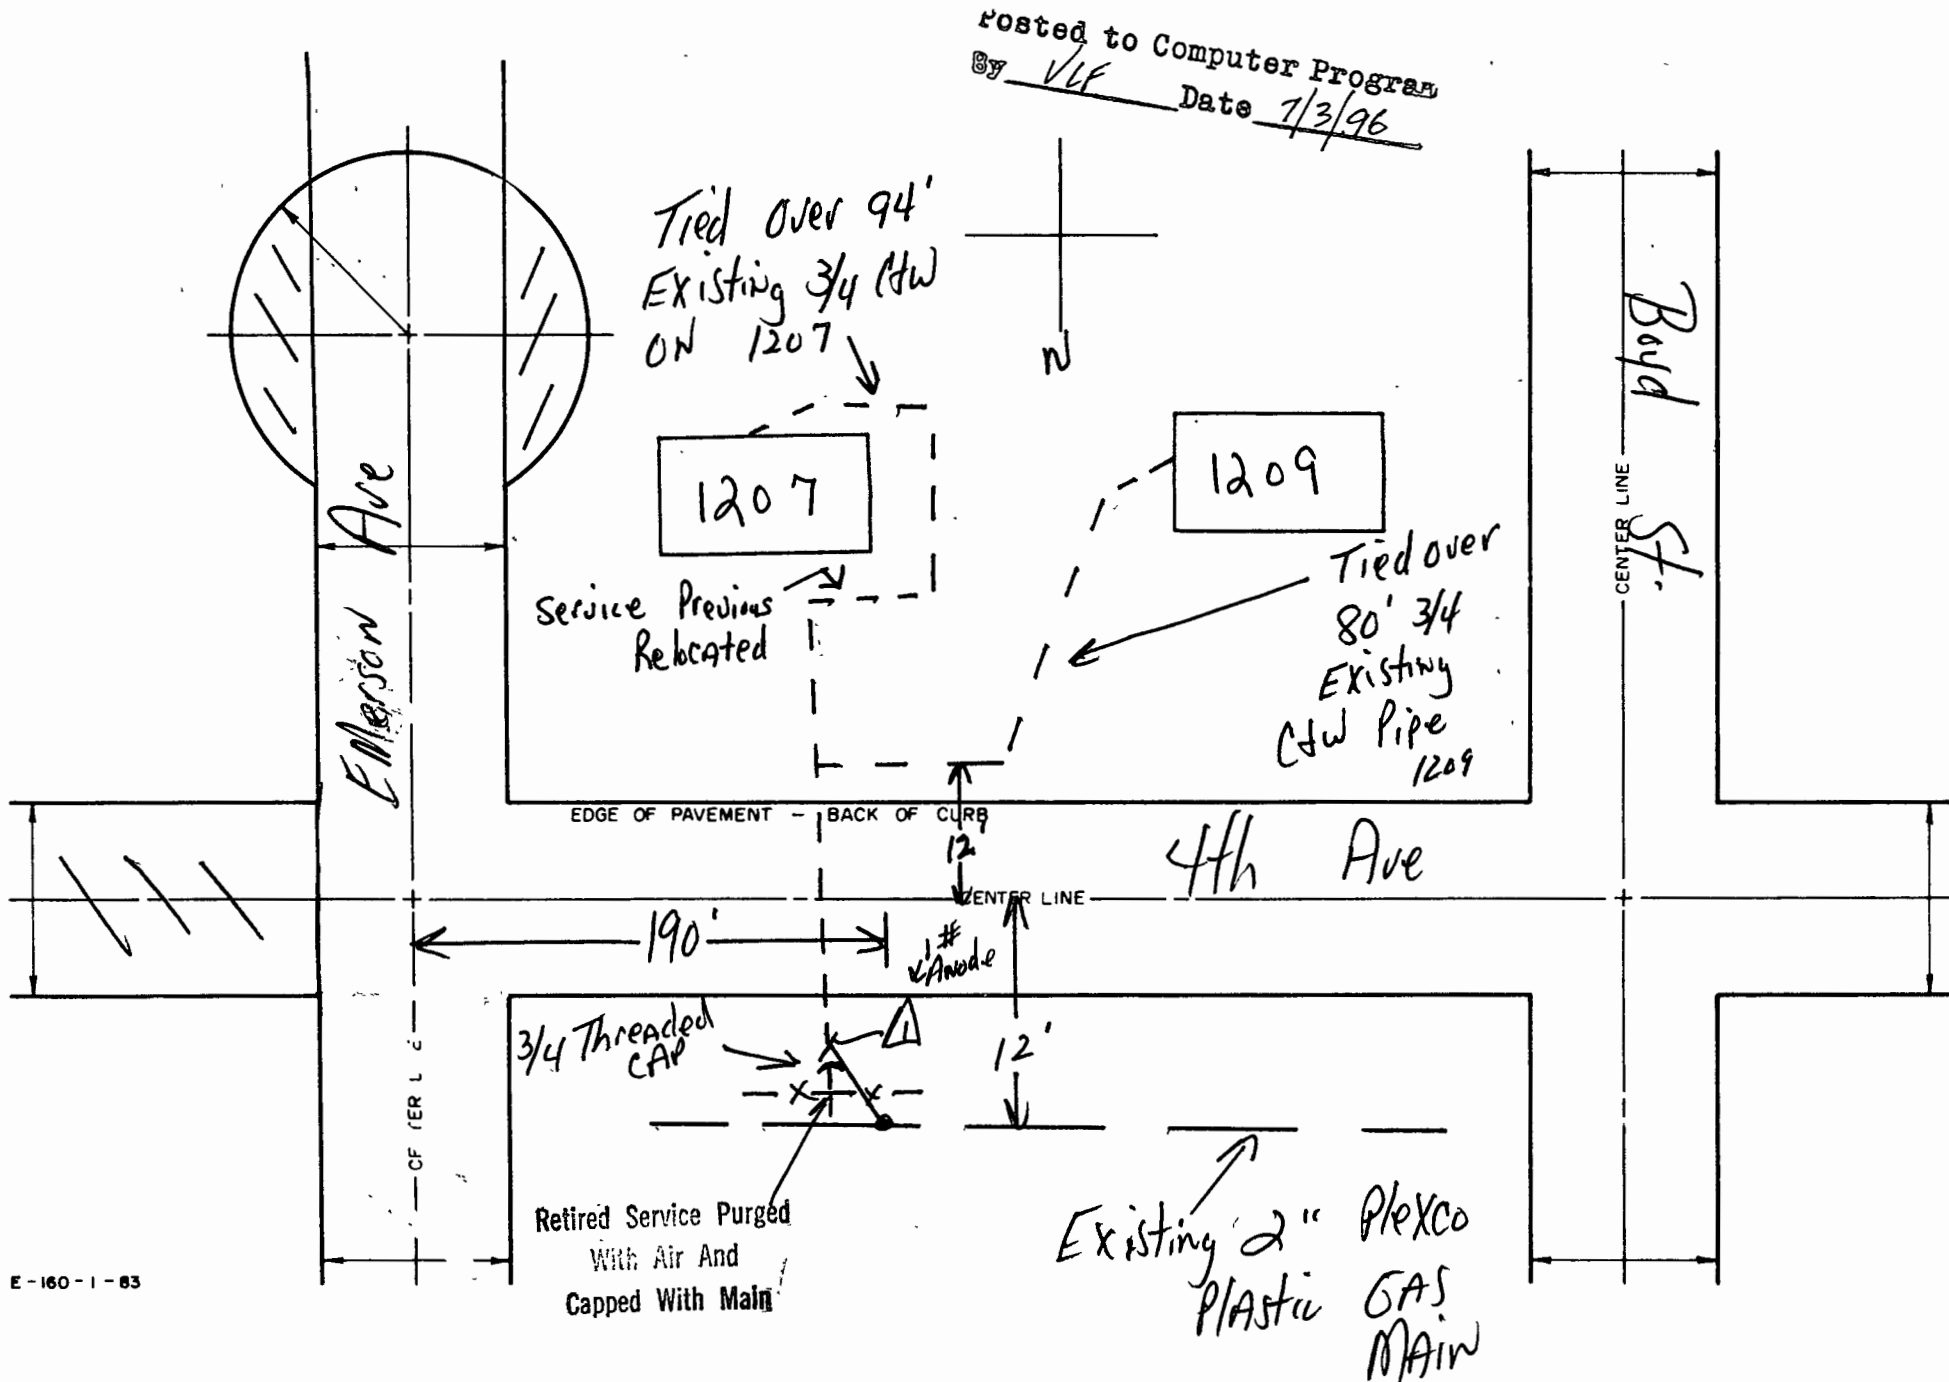 Posted to Computer Program
By VLF Date 7/3/96
Tied Over 94'
Existing 3/4 C&W
ON 1207
N
Boyd St.
CENTER LINE
1207
1209
Emerson Ave
Service Previous
Relocated
Tied over
80' 3/4
Existing
C&W Pipe
1209
EDGE OF PAVEMENT - BACK OF CURB
12'
4th Ave
CENTER LINE
190'
1#
Anode
3/4 Threaded
CAP
1
12'
Retired Service Purged
With Air And
Capped With Main
Existing 2" Plexco
Plastic GAS
MAIN
E-160-1-83